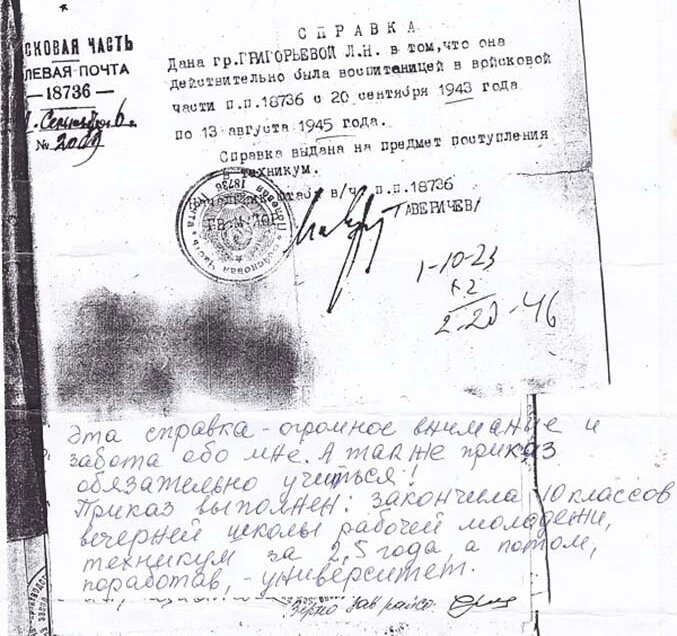 СПРАВКА
СКОВАЯ ЧАСТЬ
ЛЕВАЯ ПОЧТА
—18736—
Сентября
№ 2009
Дана гр.ГРИГОРЬЕВОЙ Л.Н. в том,что она
действительно была воспитаницей в войсковой
части п.п.18736 с 20 сентября 1943 года
по 13 августа 1945 года.
Справка выдана на предмет поступления
в техникум.
штаба в/ч п.п.18736
ГВ.М-ЙОР
/ТАВЕРИЧЕВ/
1-10-23
x2
2-20-46
Эта справка - огромное внимание и
забота обо мне. А также приказ
обязательно учиться!
Приказ выполнен: закончила 10 классов
вечерней школы рабочей молодежи,
техникум за 2,5 года, а потом,
поработав, - университет.
Верно зав райсо.